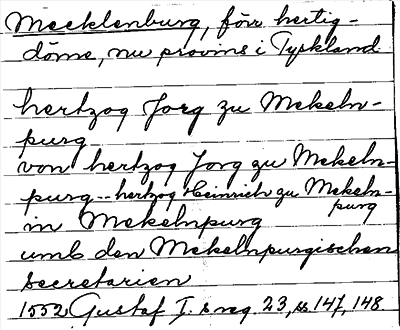 Mecklenburg, förr hertig-
döme, nu provins i Tyskland
hertzog Jorg zu Mekeln-
purg
von hertzog Jorg zu Mekeln-
purg -- hertzog Heinrich zu Mekeln-
purg
in Mekelnpurg
umb den Mekelnpurgischen
secretarien
1552 Gustaf I. s reg. 23, ss 147, 148.